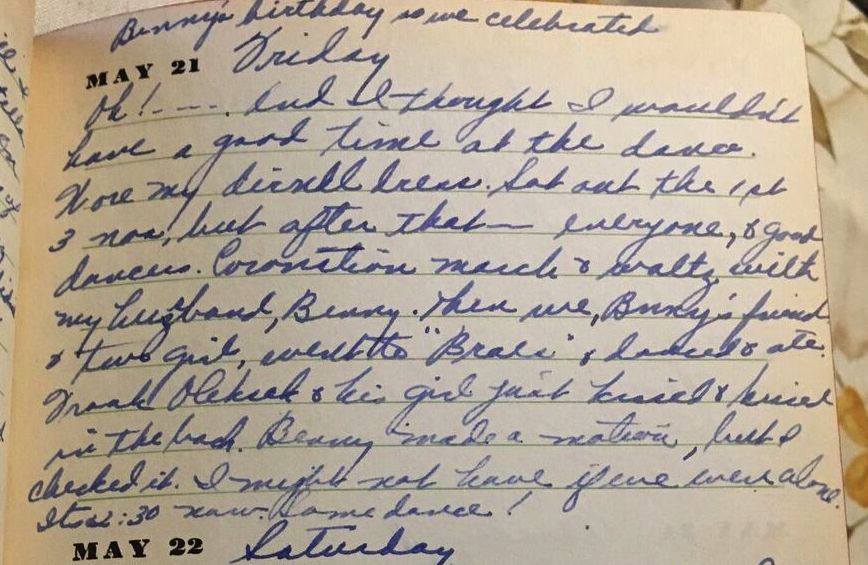 Benny's birthday so we celebrated
MAY 21 Friday
Oh!---. And I thought I wouldn't
have a good time at the dance.
Wore my dirndll dress. Sat out the 1st
3 nos, but after that — everyone, & good
dancers. Coronition march & waltz with
my huzband, Benny. Then we, Benny's friend
& two girl, went to "Braes" & danced & ate.
Frank Oleksak & his girl just kissed & kissed
in the back. Benny made a motion, but I
checked it. I might not have if we were alone.
It's 2:30 now. Some dance!
MAY 22 Saturday